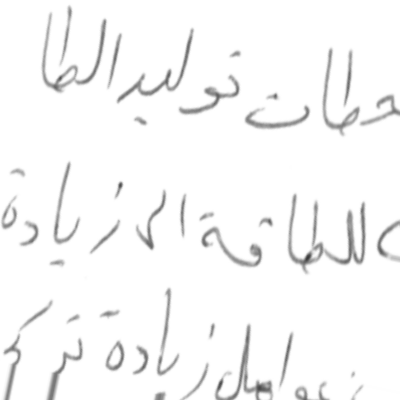 حطات توليد الطا
للطاقة الى زيادة
عوامل زيادة تر